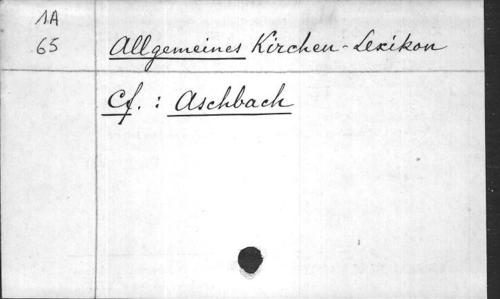 1A
65
Allgemeines Kirchen-Lexikon
Cf. : Aschbach